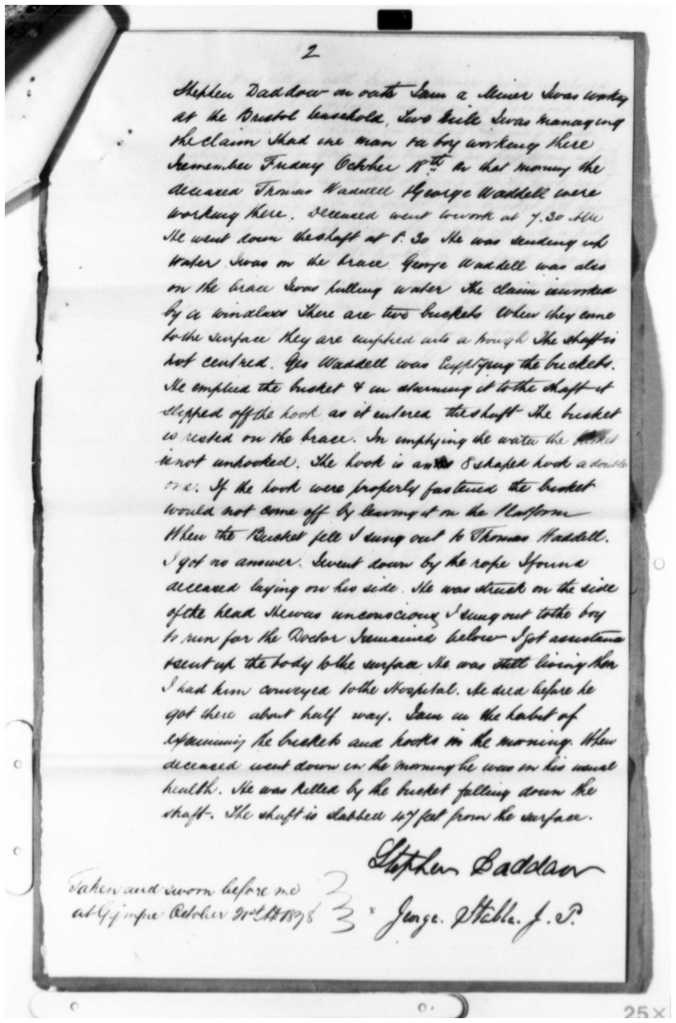 2
Stephen Daddow on oath I am a Miner I was working
at the Bristol leasehold, Two Mile I was managing
the claim I had one man & a boy working there
I remember Friday October 18th On that morning the
deceased Thomas Waddell & George Waddell were
working there. Deceased went to work at 7.30 AM
He went down the shaft at 8.30 He was sending up
water I was on the brace George Waddell was also
on the brace I was pulling water The claim is worked
by a windlass There are two buckets When they come
to the surface they are emptied into a trough The shaft is
not centred. Geo Waddell was Emptying the buckets.
He emptied the bucket & in returning it to the shaft it
slipped off the hook as it entered the shaft The bucket
is rested on the brace. In emptying the water the bucket
is not unhooked. The hook is an S shaped hook a double
one. If the hook were properly fastened the bucket
would not come off by leaving it on the Platform
When the Bucket fell I sung out to Thomas Waddell.
I got no answer. I went down by the rope I found
deceased laying on his side. He was struck on the side
of the head He was unconscious, I sung out to the boy
to run for the Doctor I remained below I got assistance
& sent up the body to the surface He was still living then
I had him conveyed to the Hospital. He died before he
got there about half way. I am in the habit of
examining the buckets and hooks in the morning. When
deceased went down in the morning he was in his usual
health. He was killed by the bucket falling down the
shaft. The shaft is slabbed 47 feet from the surface.
Stephen Daddow
Taken and sworn before me
at Gympie October 21st 1878
George Stable J. P.
25X